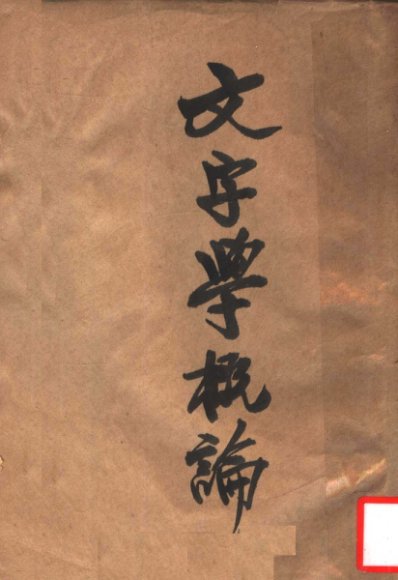 文字學概論